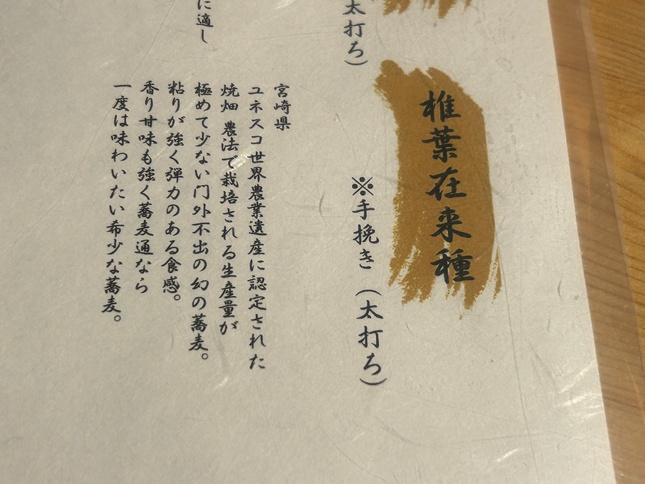 太打ち）
に適し
椎葉在来種
※手挽き（太打ち）
宮崎県
ユネスコ世界農業遺産に認定された
焼畑 農法で栽培される生産量が
極めて少ない門外不出の幻の蕎麦。
粘りが強く弾力のある食感。
香り甘味も強く蕎麦通なら
一度は味わいたい希少な蕎麦。